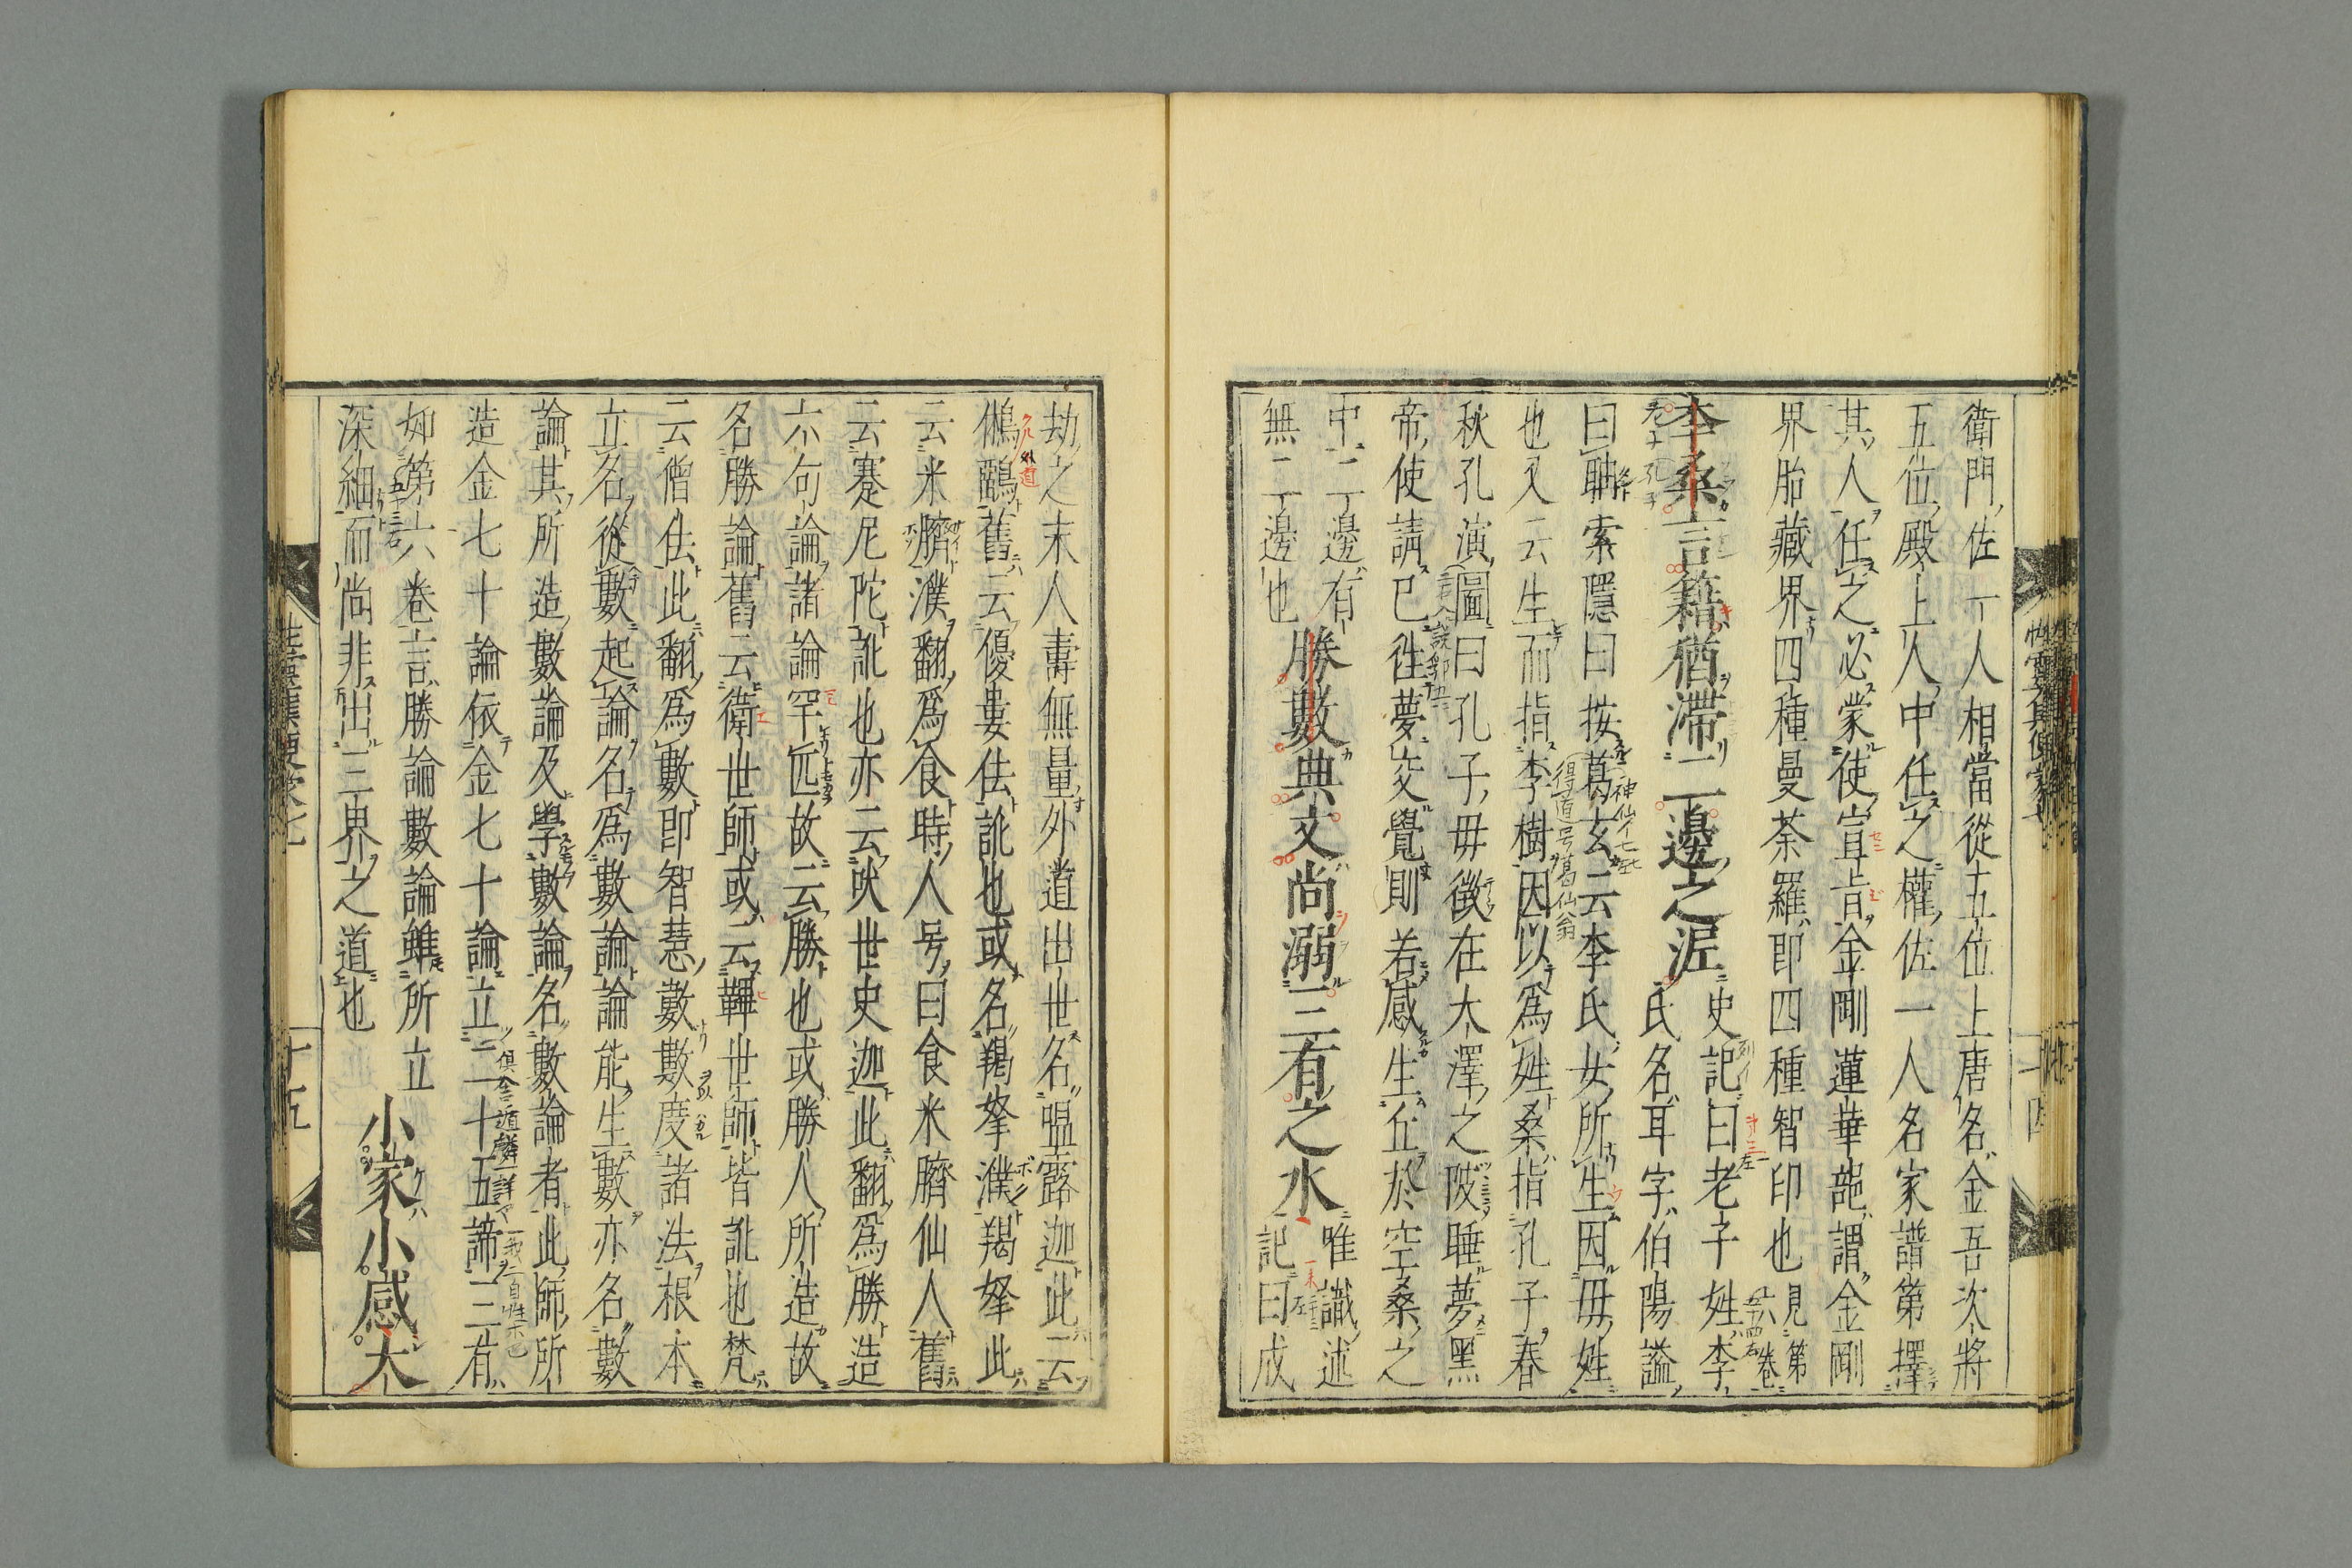 衛門佐一人相當從五位上唐名金吾次將
五位殿上人中任之權佐一人名家譜第擇
其人任之必蒙使宣旨金剛蓮華範謂金剛
界胎藏界四種曼荼羅即四種智印也
見第
六卷
李桑言籍猶滯二邊之泥
史記曰老子姓李
氏名耳字伯陽謚
曰聃索隱曰按葛玄云李氏女所生因毋姓
也又云生而指李樹因以爲姓桑指孔子春
秋孔演圖曰孔子毋徵在大澤之陂睡夢黑
帝使請已徃夢交覺則若感生丘於空桑之
中二邊有
無二邊也
勝數典文尚溺三有之水
唯識述
記曰成
劫之末人壽無量外道出世名嗢露迦此云
鵂鶹舊云優婁佉訛也或名羯拏濮羯拏此
云米臍濮翻爲食時人号曰食米臍仙人舊
云蹇尼陀訛也亦云吠世史迦此翻爲勝造
六句論諸論罕匹故云勝也或勝人所造故
名勝論舊云衛世師或云鞞世師皆訛也梵
云僧佉此翻爲數即智慧數數度諸法根本
立名從數起論名爲數論論能生數亦名數
論其所造數論及學數論名數論者此師所
造金七十論依金七十論立二十五諦三有
如第六卷言勝論數論雖所立
深細而尚非出三界之道也
小家小感大
十五